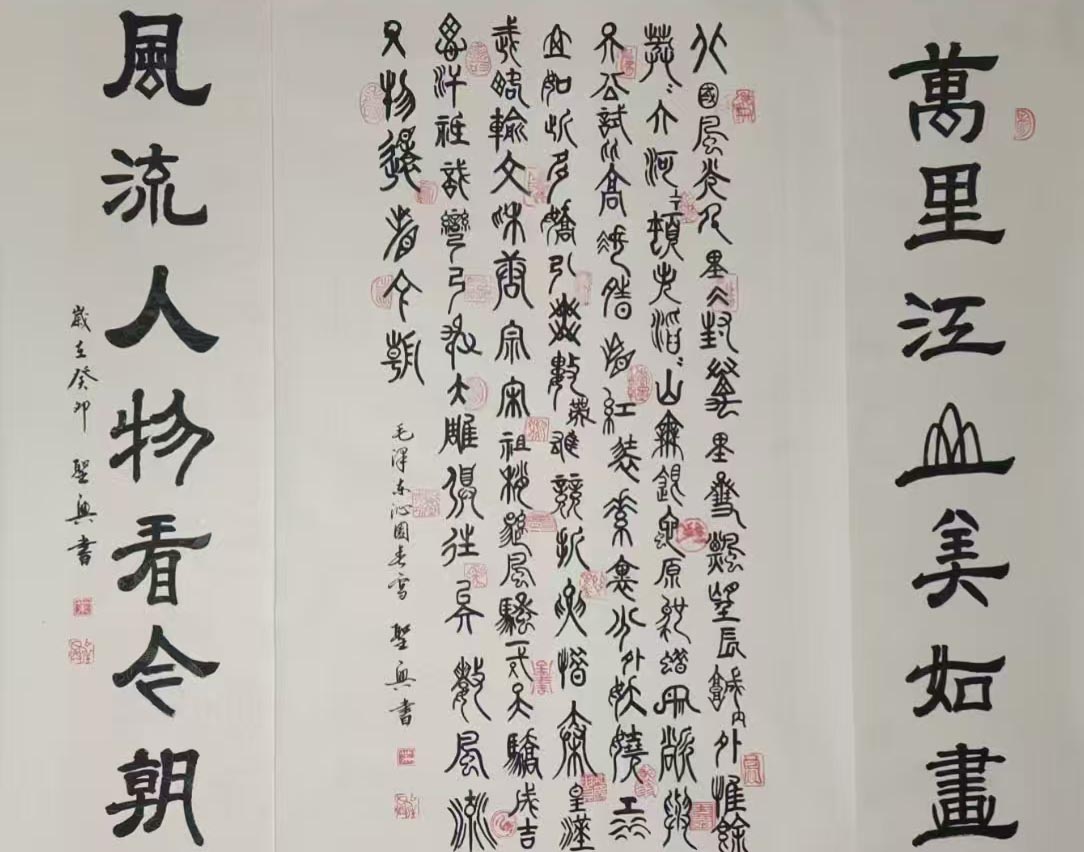 萬里江山美如畫
北國風光千里冰封萬里雪飄望長城內外惟餘
莽〻大河上下頓失滔〻山舞銀蛇原馳蠟象欲與
天公試比高須晴日看紅裝素裹分外妖嬈江
山如此多嬌引無數英雄競折腰惜秦皇漢
武略輸文采唐宗宋祖稍遜風騷一代天驕成吉
思汗祗識彎弓射大雕俱往矣數風流
人物還看今朝
毛澤东沁園春雪 聖興書
風流人物看今朝
歲在癸卯 聖興書